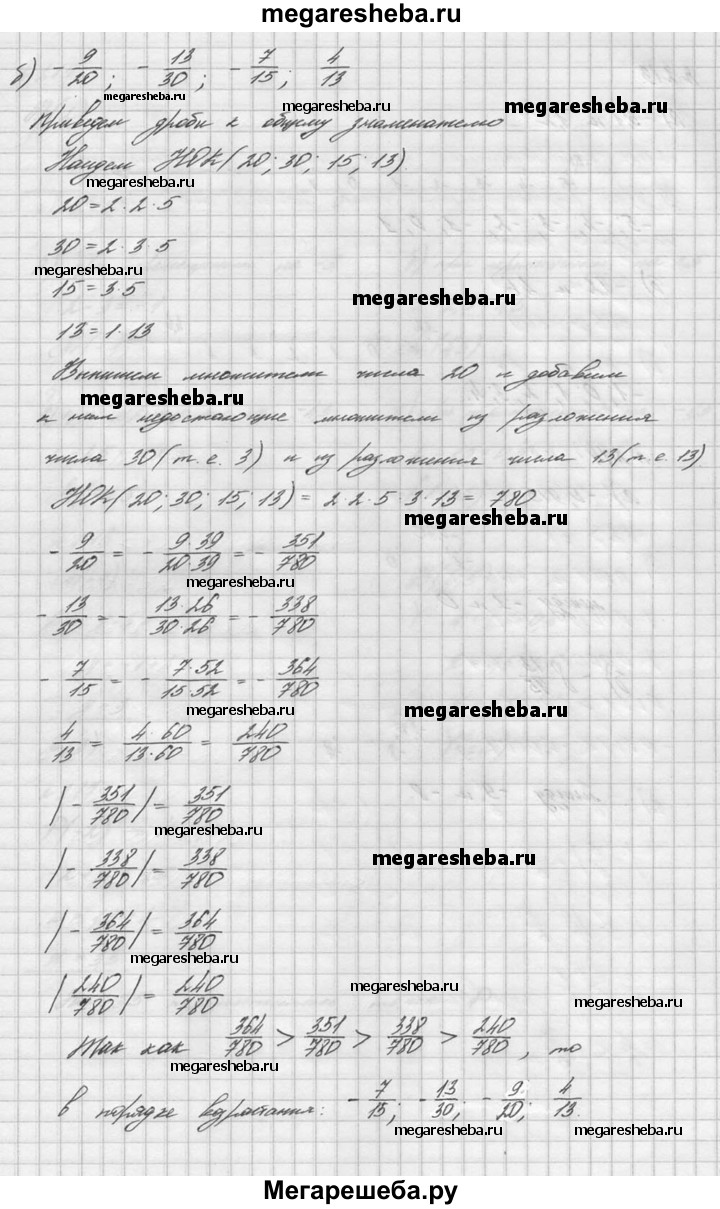 megaresheba.ru
б) -9/20; -13/30; -7/15; 4/13
megaresheba.ru
megaresheba.ru
megaresheba.ru
Приведем дроби к общему знаменателю
Найдем НОК(20; 30; 15; 13).
megaresheba.ru
20=2·2·5
30=2·3·5
megaresheba.ru
15=3·5
megaresheba.ru
13=1·13
Выпишем множители числа 20 и добавим
megaresheba.ru
к ним недостающие множители из разложения
числа 30 (т.е. 3) и из разложения числа 13 (т.е. 13)
НОК(20; 30; 15; 13) = 2·2·5·3·13= 780
megaresheba.ru
-9/20 = -9·39/20·39 = -351/780
megaresheba.ru
-13/30 = -13·26/30·26 = -338/780
megaresheba.ru
-7/15 = -7·52/15·52 = -364/780
megaresheba.ru
megaresheba.ru
4/13 = 4·60/13·60 = 240/780
|-351/780| = 351/780
megaresheba.ru
|-338/780| = 338/780
megaresheba.ru
|-364/780| = 364/780
megaresheba.ru
|240/780| = 240/780
megaresheba.ru
megaresheba.ru
Так как 364/780 > 351/780 > 338/780 > 240/780, то
megaresheba.ru
в порядке возрастания: -7/15; -13/30; -9/20; 4/13.
megaresheba.ru
megaresheba.ru
Мегарешеба.ру